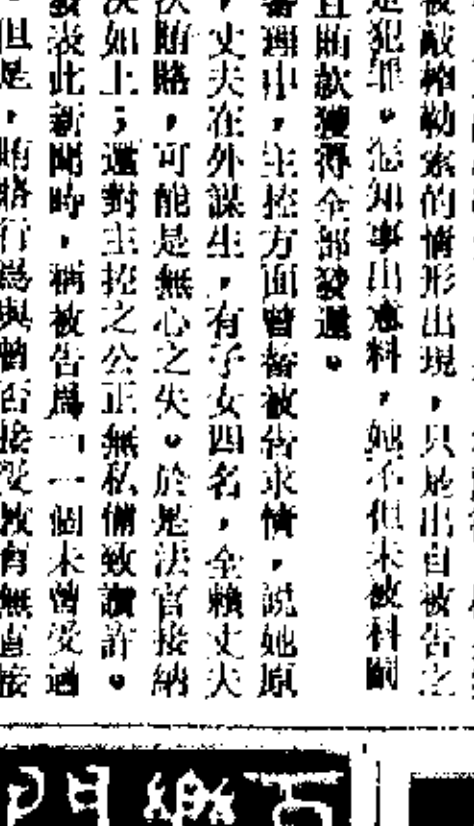 被敲榨勒索的情形出現,只是出自被告之
是犯罪。怎知事出意料,她不但未被科罰
且賄款獲得全部發還。
審理中,主控方面曾替被告求情,說她原
,丈夫在外謀生,有子女四名,全賴丈夫
次賄賂,可能是無心之失。於是法官接納
決如上;還對主控之公正無私備致讚許。
發表此新聞時,稱被告爲「一個未曾受過
但是,賄賂行爲與曾否接受教育無直接